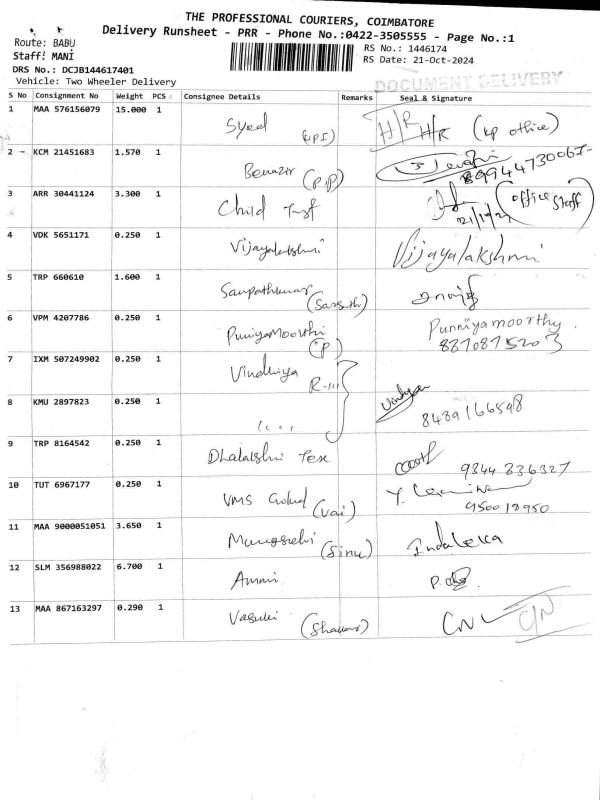 THE PROFESSIONAL COURIERS, COIMBATORE
Delivery Runsheet - PRR - Phone No.:0422-3505555 - Page No.:1
Route: BABU
RS No.: 1446174
Staff: MANI
RS Date: 21-Oct-2024
DRS No.: DCJB144617401
Vehicle: Two Wheeler Delivery
DOCUMENT DELIVERY
S No Consignment No Weight PCS Consignee Details Remarks Seal & Signature
1 MAA 576156079 15.000 1 Syed H/R H/R (kp office)
2 - KCM 21451683 1.570 1 Benazir (P.P)
3 ARR 30441124 3.300 1 Child Trust (office staff)
4 VDK 5651171 0.250 1 Vijayalakshmi Vijayalakshmi
5 TRP 660610 1.600 1 Sampathkumar
6 VPM 4207786 0.250 1 Punniyamoorthi (P) Punniyamoorthy
8870875203
7 IXM 507249902 0.250 1 Vindhiya
8 KMU 2897823 0.250 1 " " 8489166598
9 TRP 8164542 0.250 1 Dhalakshi Tex 9344 836327
10 TUT 6967177 0.250 1 VMS (Vai)
95001 8950
11 MAA 9000051051 3.650 1 (Sinu) Indaleka
12 SLM 356988022 6.700 1 Ammi
13 MAA 867163297 0.290 1 Vasuki CNC C/N